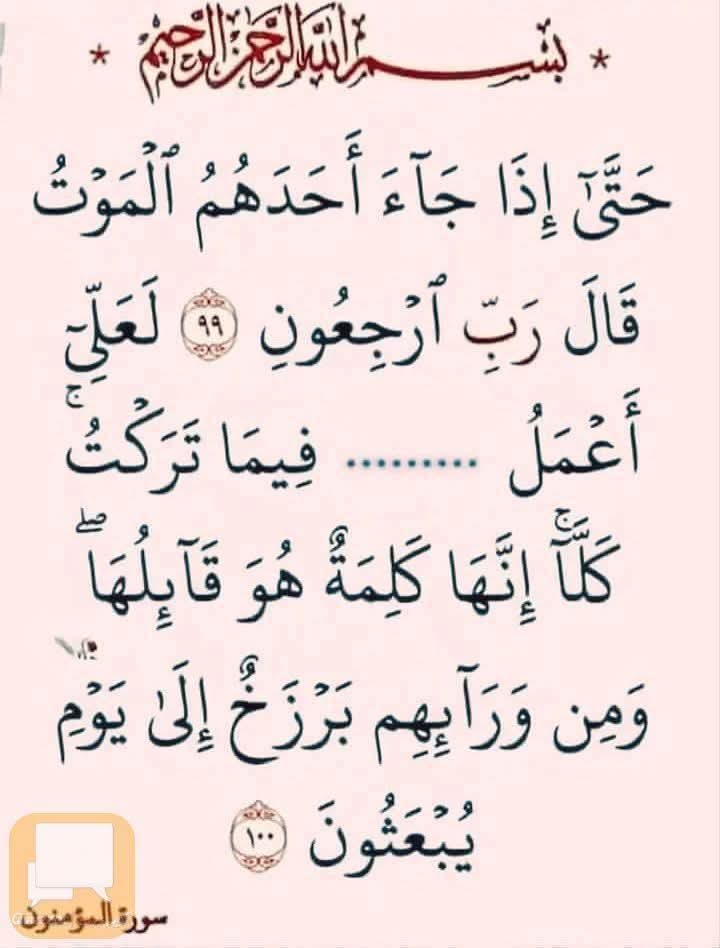 * بِسْمِ اللَّهِ الرَّحْمَٰنِ الرَّحِيمِ *
حَتَّىٰٓ إِذَا جَآءَ أَحَدَهُمُ ٱلْمَوْتُ
قَالَ رَبِّ ٱرْجِعُونِ ٩٩ لَعَلِّىٓ
أَعْمَلُ ......... فِيمَا تَرَكْتُ ۚ
كَلَّآ ۚ إِنَّهَا كَلِمَةٌ هُوَ قَآئِلُهَا ۖ
وَمِن وَرَآئِهِم بَرْزَخٌ إِلَىٰ يَوْمِ
يُبْعَثُونَ ١٠٠
سورة المؤمنون